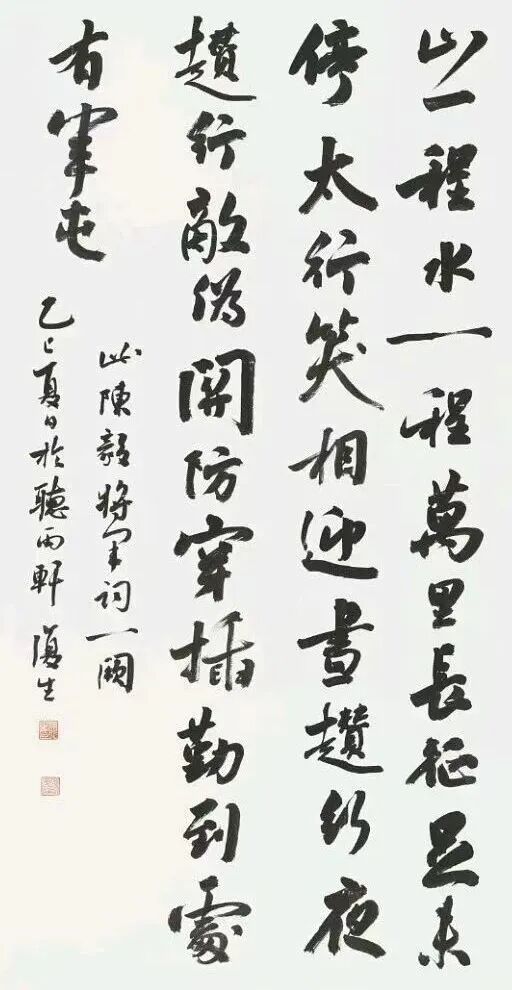 山一程水一程萬里長征足未
停太行笑相迎晝趲行夜
趲行敵偽關防穿插勤到處
有軍屯
此陳毅將軍詞一闋
乙巳夏日於聽雨軒 復生